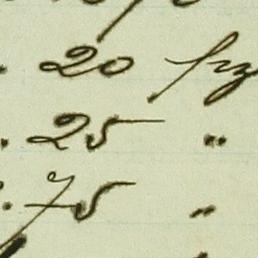 . 20 frz
. 25 "
. 75 "